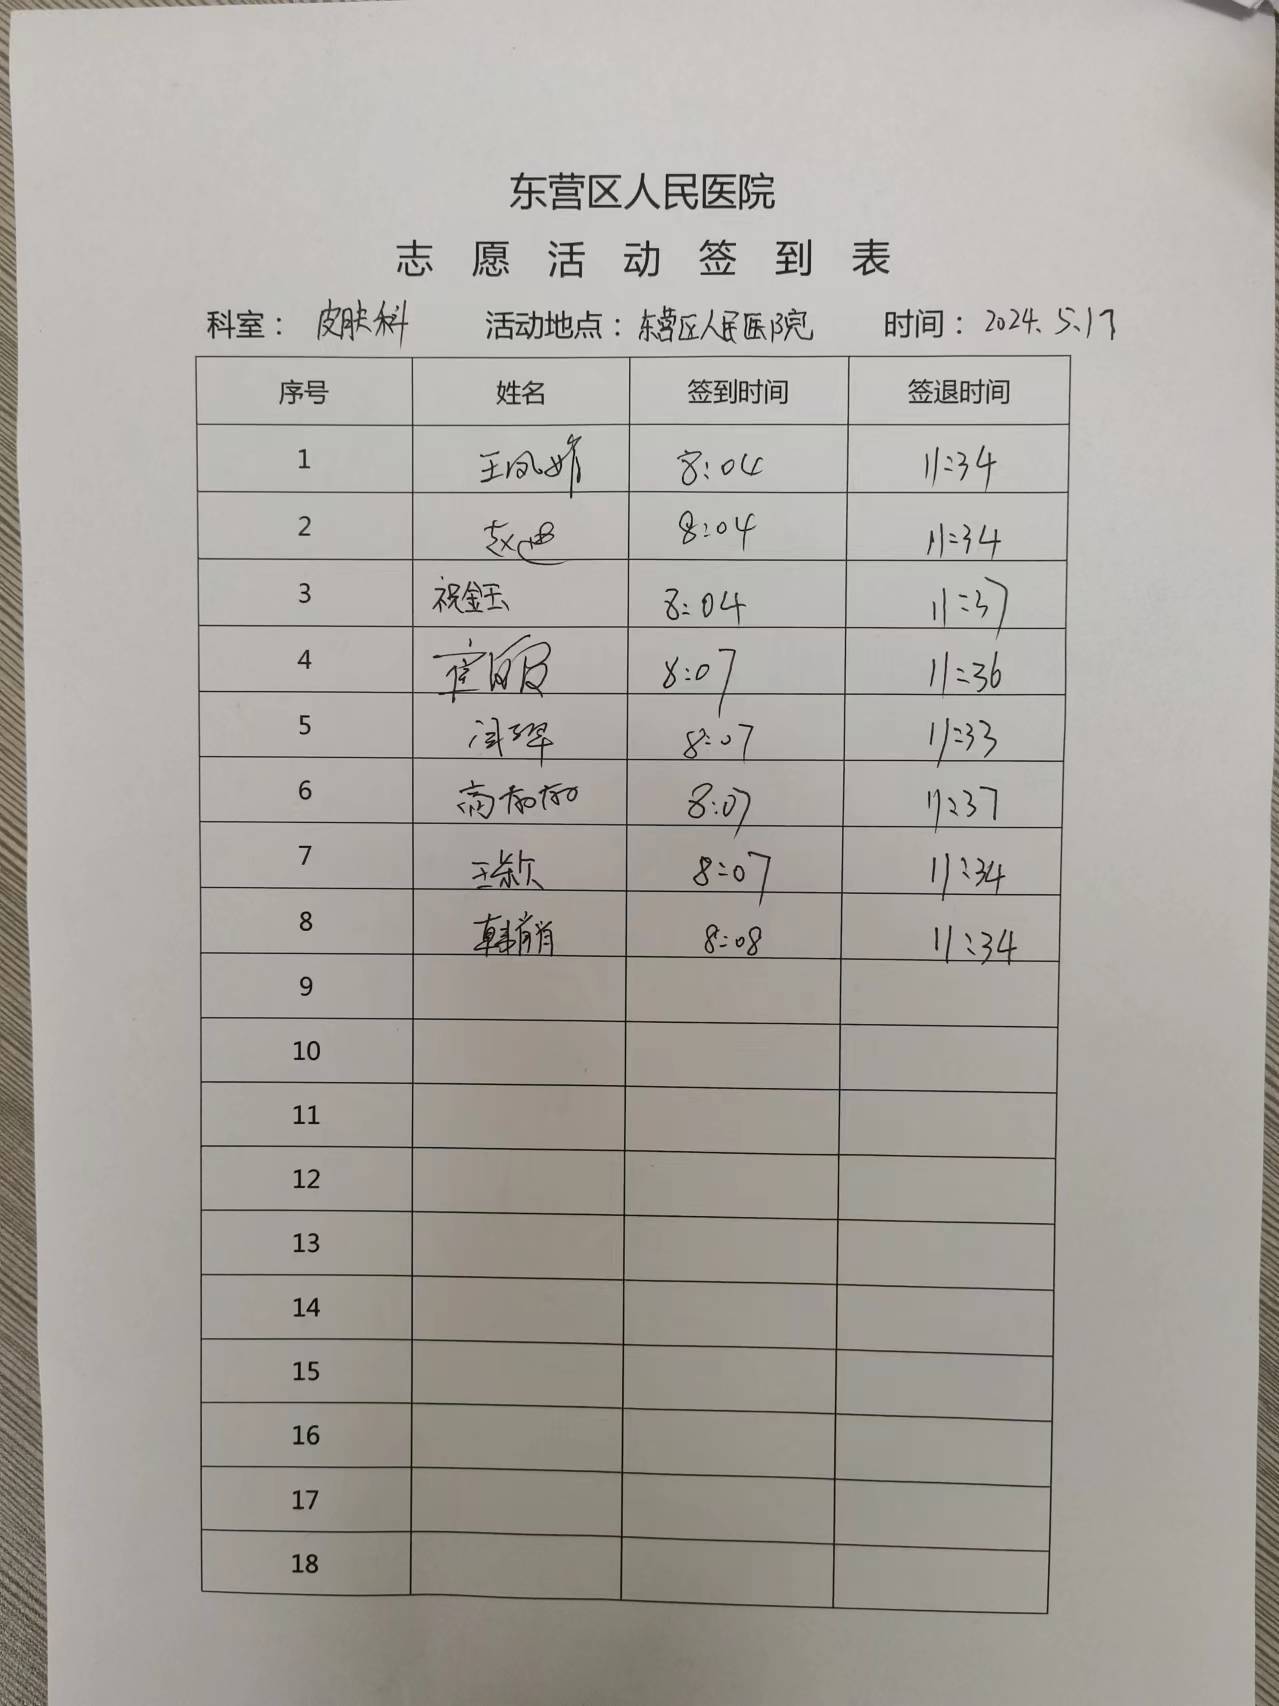 东营区人民医院
志愿活动签到表
科室：皮肤科 活动地点：东营区人民医院 时间：2024.5.17
序号 姓名 签到时间 签退时间
1 王凤娇 8:04 11:34
2 赵迪 8:04 11:34
3 祝金玉 8:04 11:37
4 8:07 11:36
5 8:07 11:33
6 高标标 8:07 11:37
7 王颖 8:07 11:34
8 韩肖肖 8:08 11:34
9
10
11
12
13
14
15
16
17
18